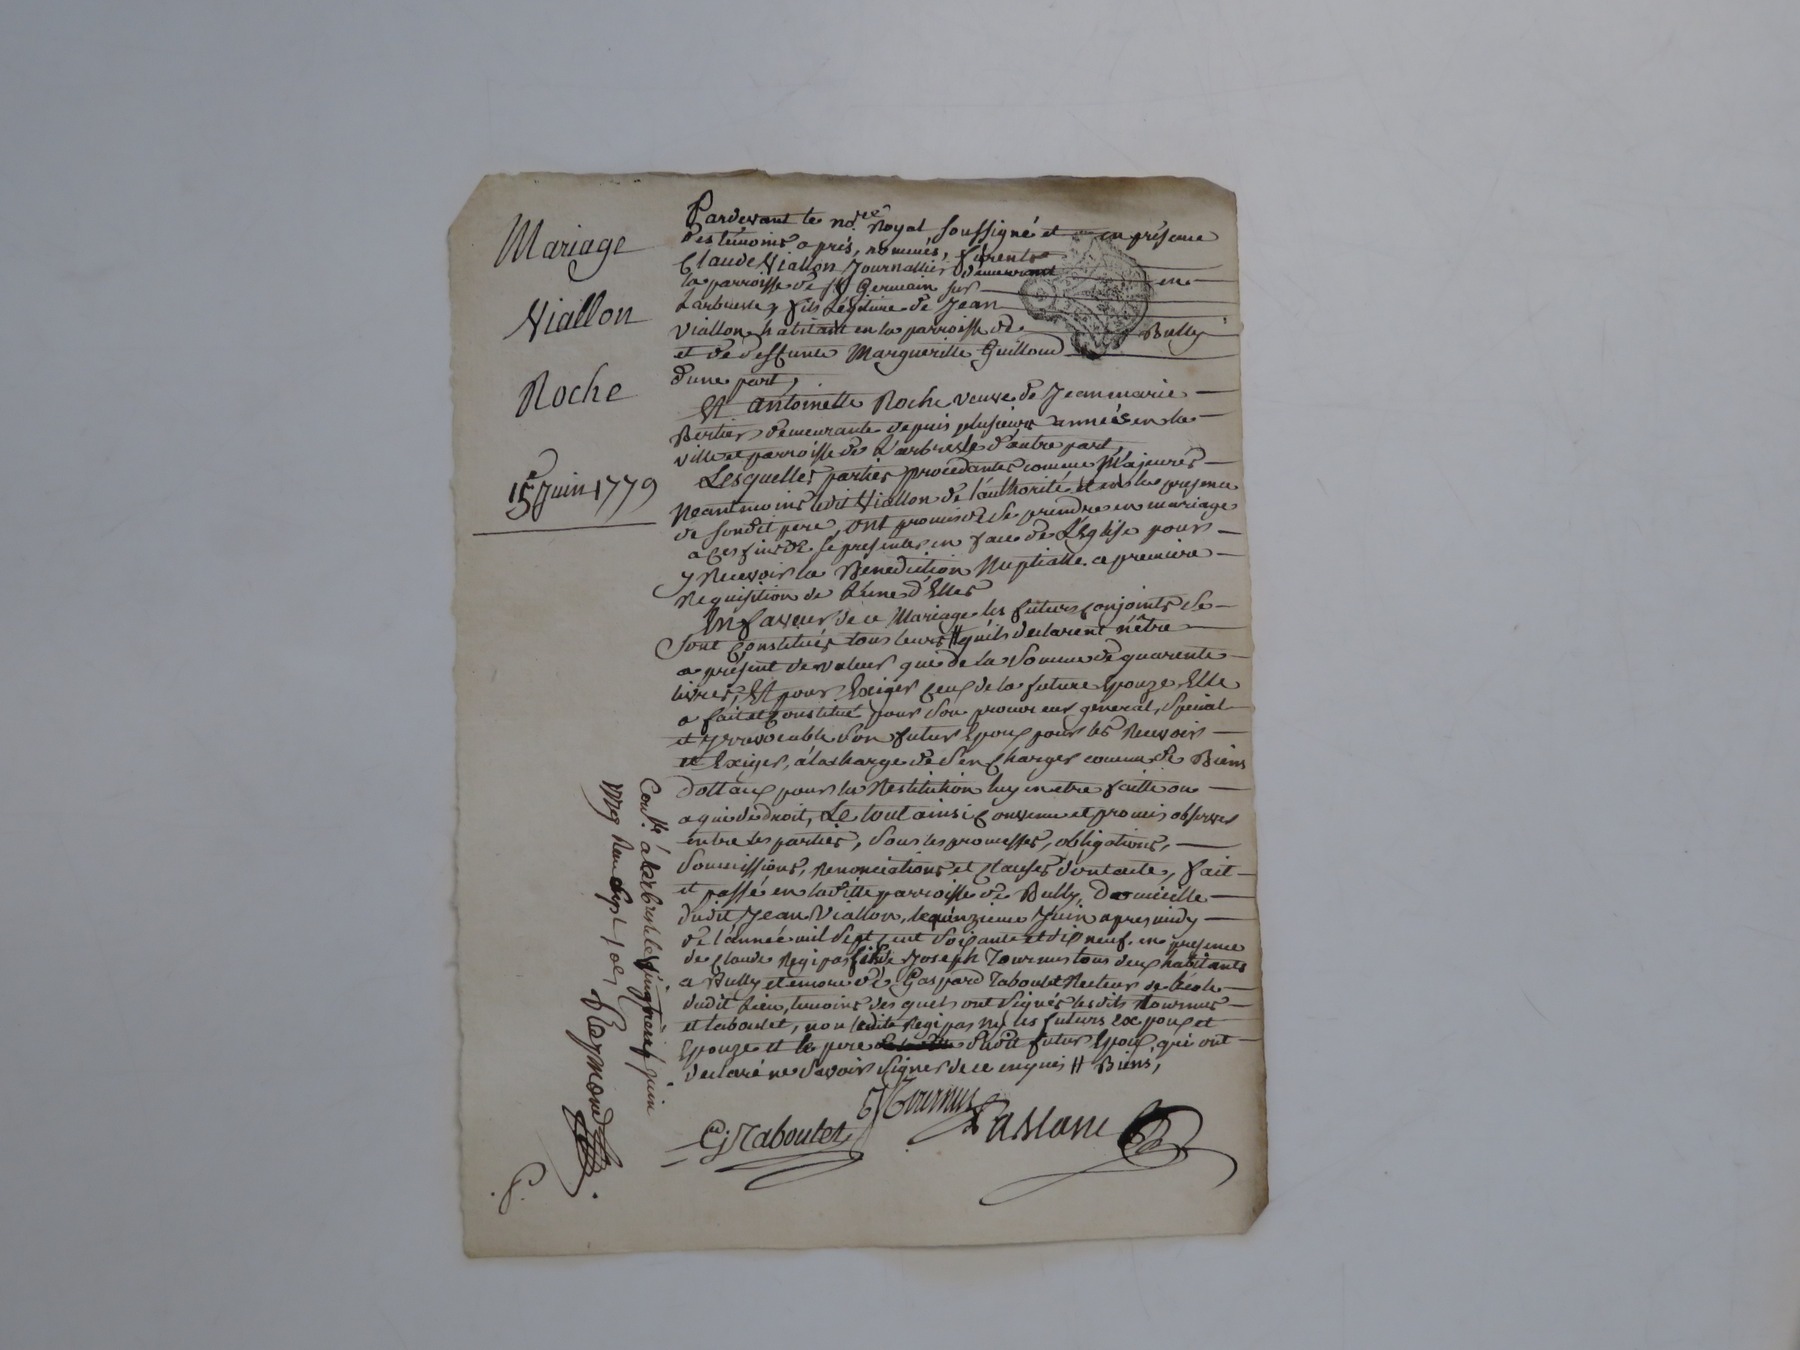 Mariage
Viallon
Roche
15 Juin 1779
Pardevant le no.re Royal soussigné et en présence
des témoins après, nommés, furent
Claude Viallon Journallier demeurant en
la parroisse de St Germain sur
Larbresle, fils légitime de Jean
Viallon habitant en la parroisse de Bully
et de deffunte Margueritte Guilloud
d'une part,
Et Antoinette Roche veuve de Jeanmarie
Bertier demeurante depuis plusieurs années en la
ville et parroisse de L'arbresle d'autre part,
Lesquelles parties procedantes comme Majeures
Neantmoins ledit Viallon de l'authorité et en la presence
de sondit pere, ont promis de se prendre en mariage
a ces fins de se presenter en face de L'Eglise pour
y Recevoir la Benediction Nuptialle a premiere
Requisition de L'une d'Elles
En faveur de ce Mariage les futurs conjoints se
sont constitués tous leurs # qu'ils declarent n'être
a présent de valeur que de la somme de quarente
livres, Et pour Exiger ceux de la future Epouze Elle
a fait et constitué pour son procureur general, special
et yrrevocable son futur Epoux pour les Recevoir
et Exiger, à la charge de s'en charger comme de Biens
dottaux pour la Restitution luy en etre faitte ou
a qui de droit, Le tout ainsi convenu et promis observer
entre les parties, sous les promesses, obligations,
soumissions, renonciations et clauses dontacte, fait
et passé en laditte parroisse de Bully, domicille
dudit Jean Viallon, le quinzieme Juin apres midy
de l'année mil sept cent soixante et dix neuf. en presence
de Claude Regipas Joseph Tournus tous deux habitants
a Bully et encore de Gaspard Taboulet Recteur de l'école
dudit lieu, temoins desquels ont signés lesdits Tournus
et taboulet, non ledit Regipas Ny les futurs Epoux et
Epouze et le pere dudit futur Epoux qui ont
declaré ne savoir signer de ce enquis # Biens,
G Taboulet
J Tournus
Passane
Con.lé à Larbresle le vingt juin
Reymond